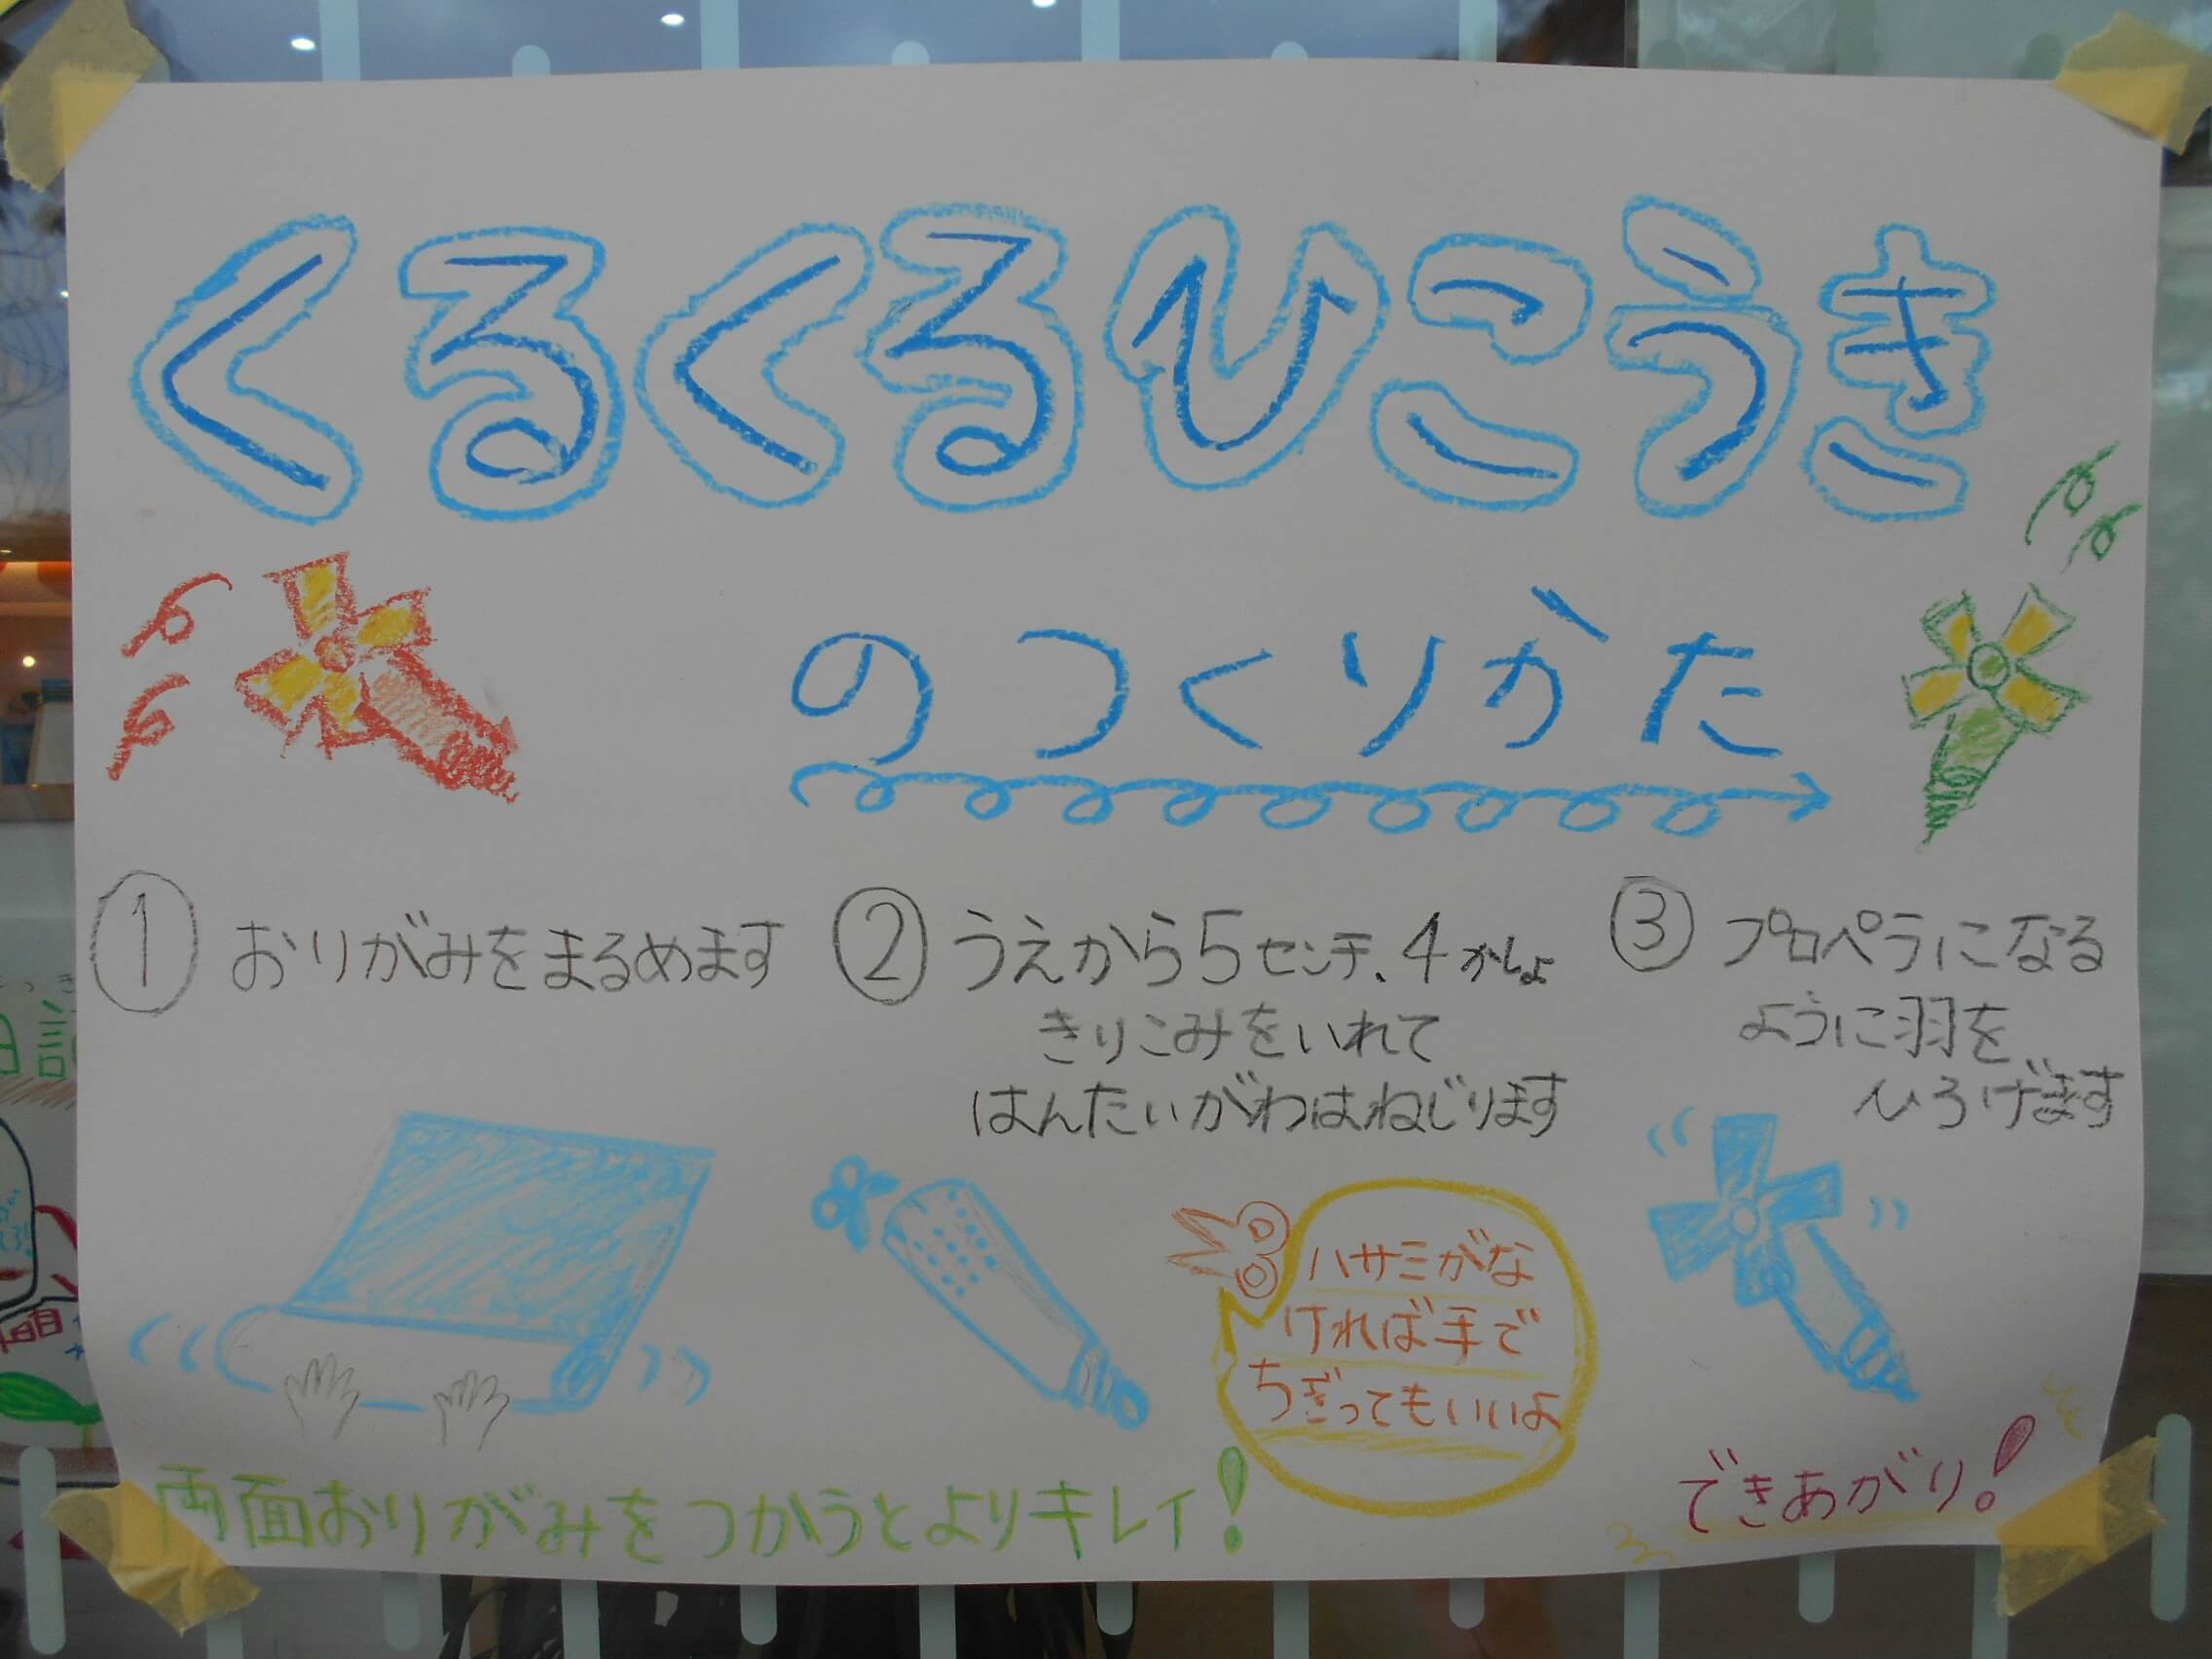 くるくるひこうき
のつくりかた
① おりがみをまるめます
② うえから5センチ、4かしょ
きりこみをいれて
はんたいがわはねじります
③ プロペラになる
ように羽を
ひろげます
ハサミがな
ければ手で
ちぎってもいいよ
できあがり!
両面おりがみをつかうとよりキレイ!